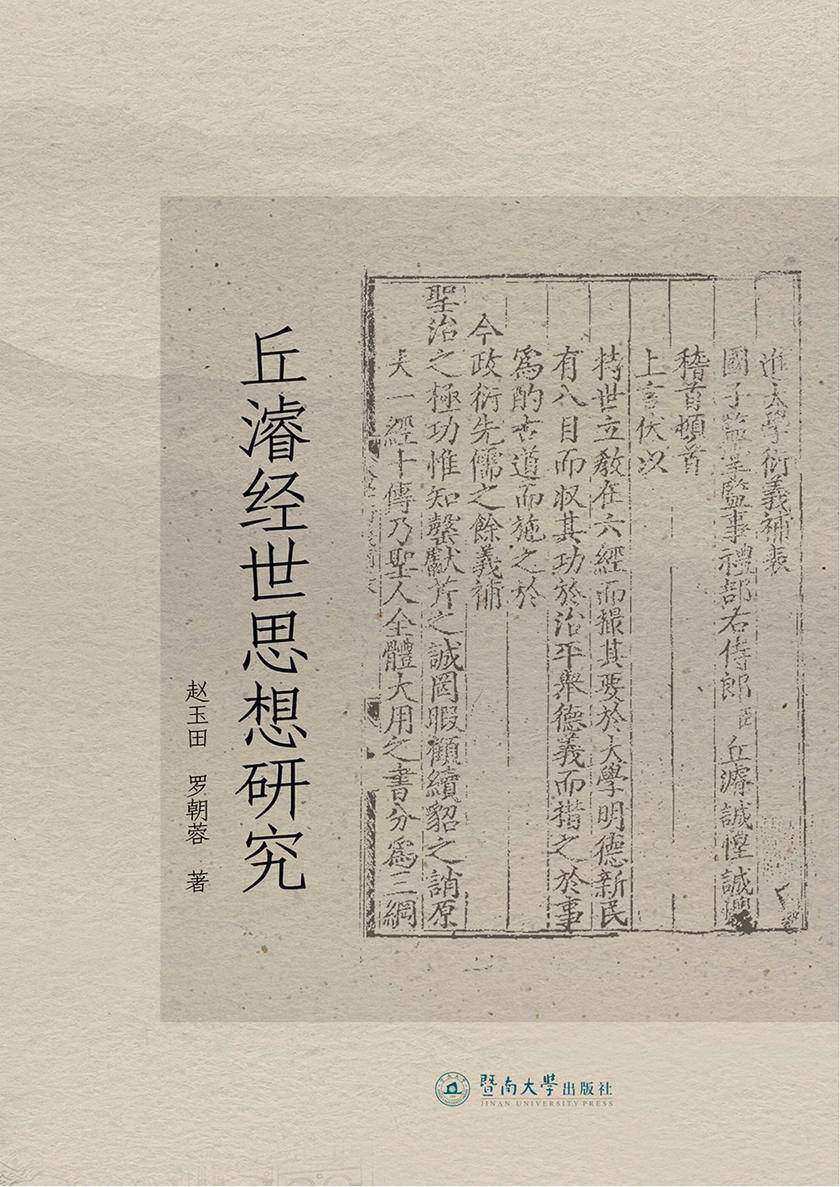 丘濬经世思想研究
赵玉田 罗朝蓉 著
進大學衍義補表
國子監掌監事禮部右侍郎臣丘濬誠惶誠懼
稽首頓首
上言伏以
持世立敎在六經而撮其要於大學明德新民
有八目而収其功於治平舉德義而措之於事
爲酌古道而施之於
今政衍先儒之餘義補
聖治之極功惟知罄獻芹之誠罔暇顧續貂之誚原
夫一經十傳乃聖人全體大用之書分爲三綱
暨南大學出版社
JINAN UNIVERSITY PRESS